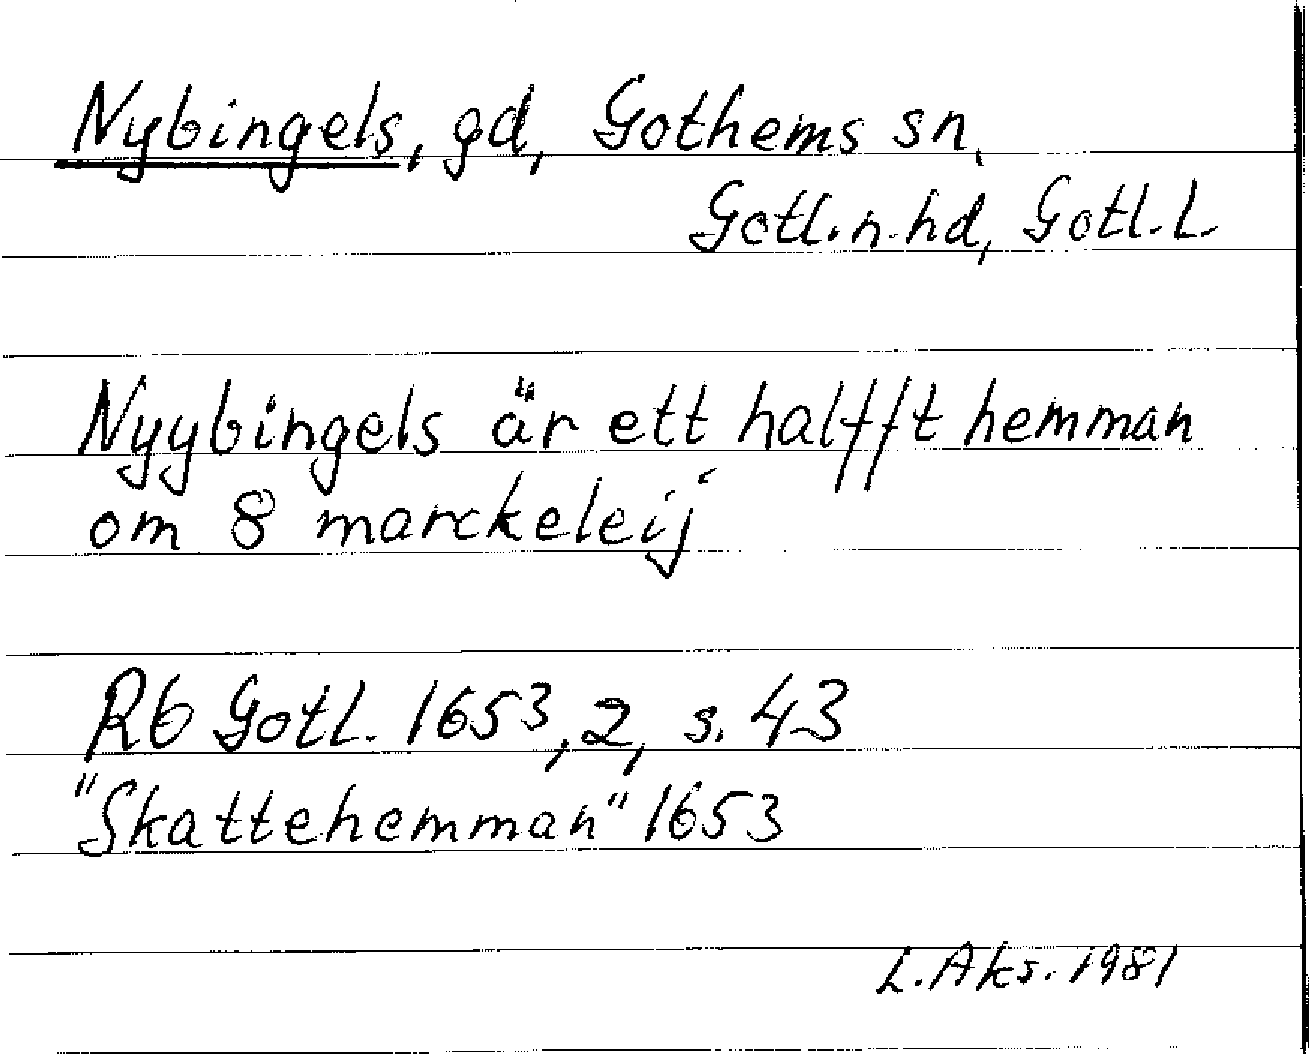 Nybingels, gd, Gothems sn,
Gotl. n. hd, Gotl. L.
Nyybingels är ett halfft hemman
om 8 marckeleij
Rb Gotl. 1653, 2, s. 43
"Skattehemman" 1653
L. Aks. 1981